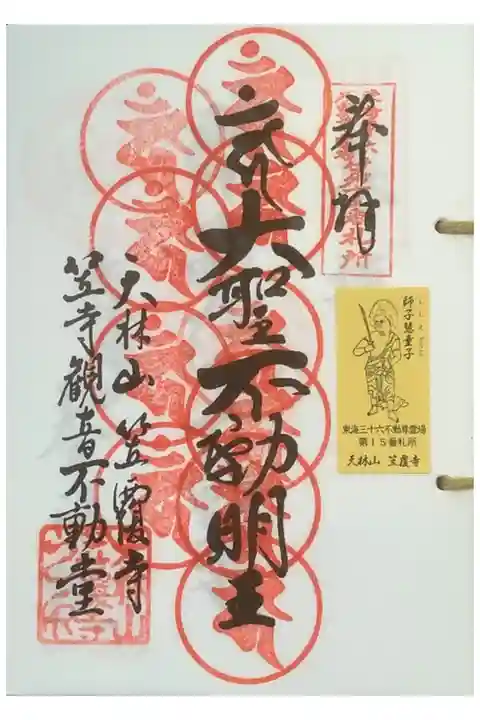 奉拝
大聖不動明王
天林山 笠覆寺
笠寺観音不動堂
師子慧童子
ししえどうじ
東海三十六不動尊霊場
第15番札所
天林山 笠覆寺